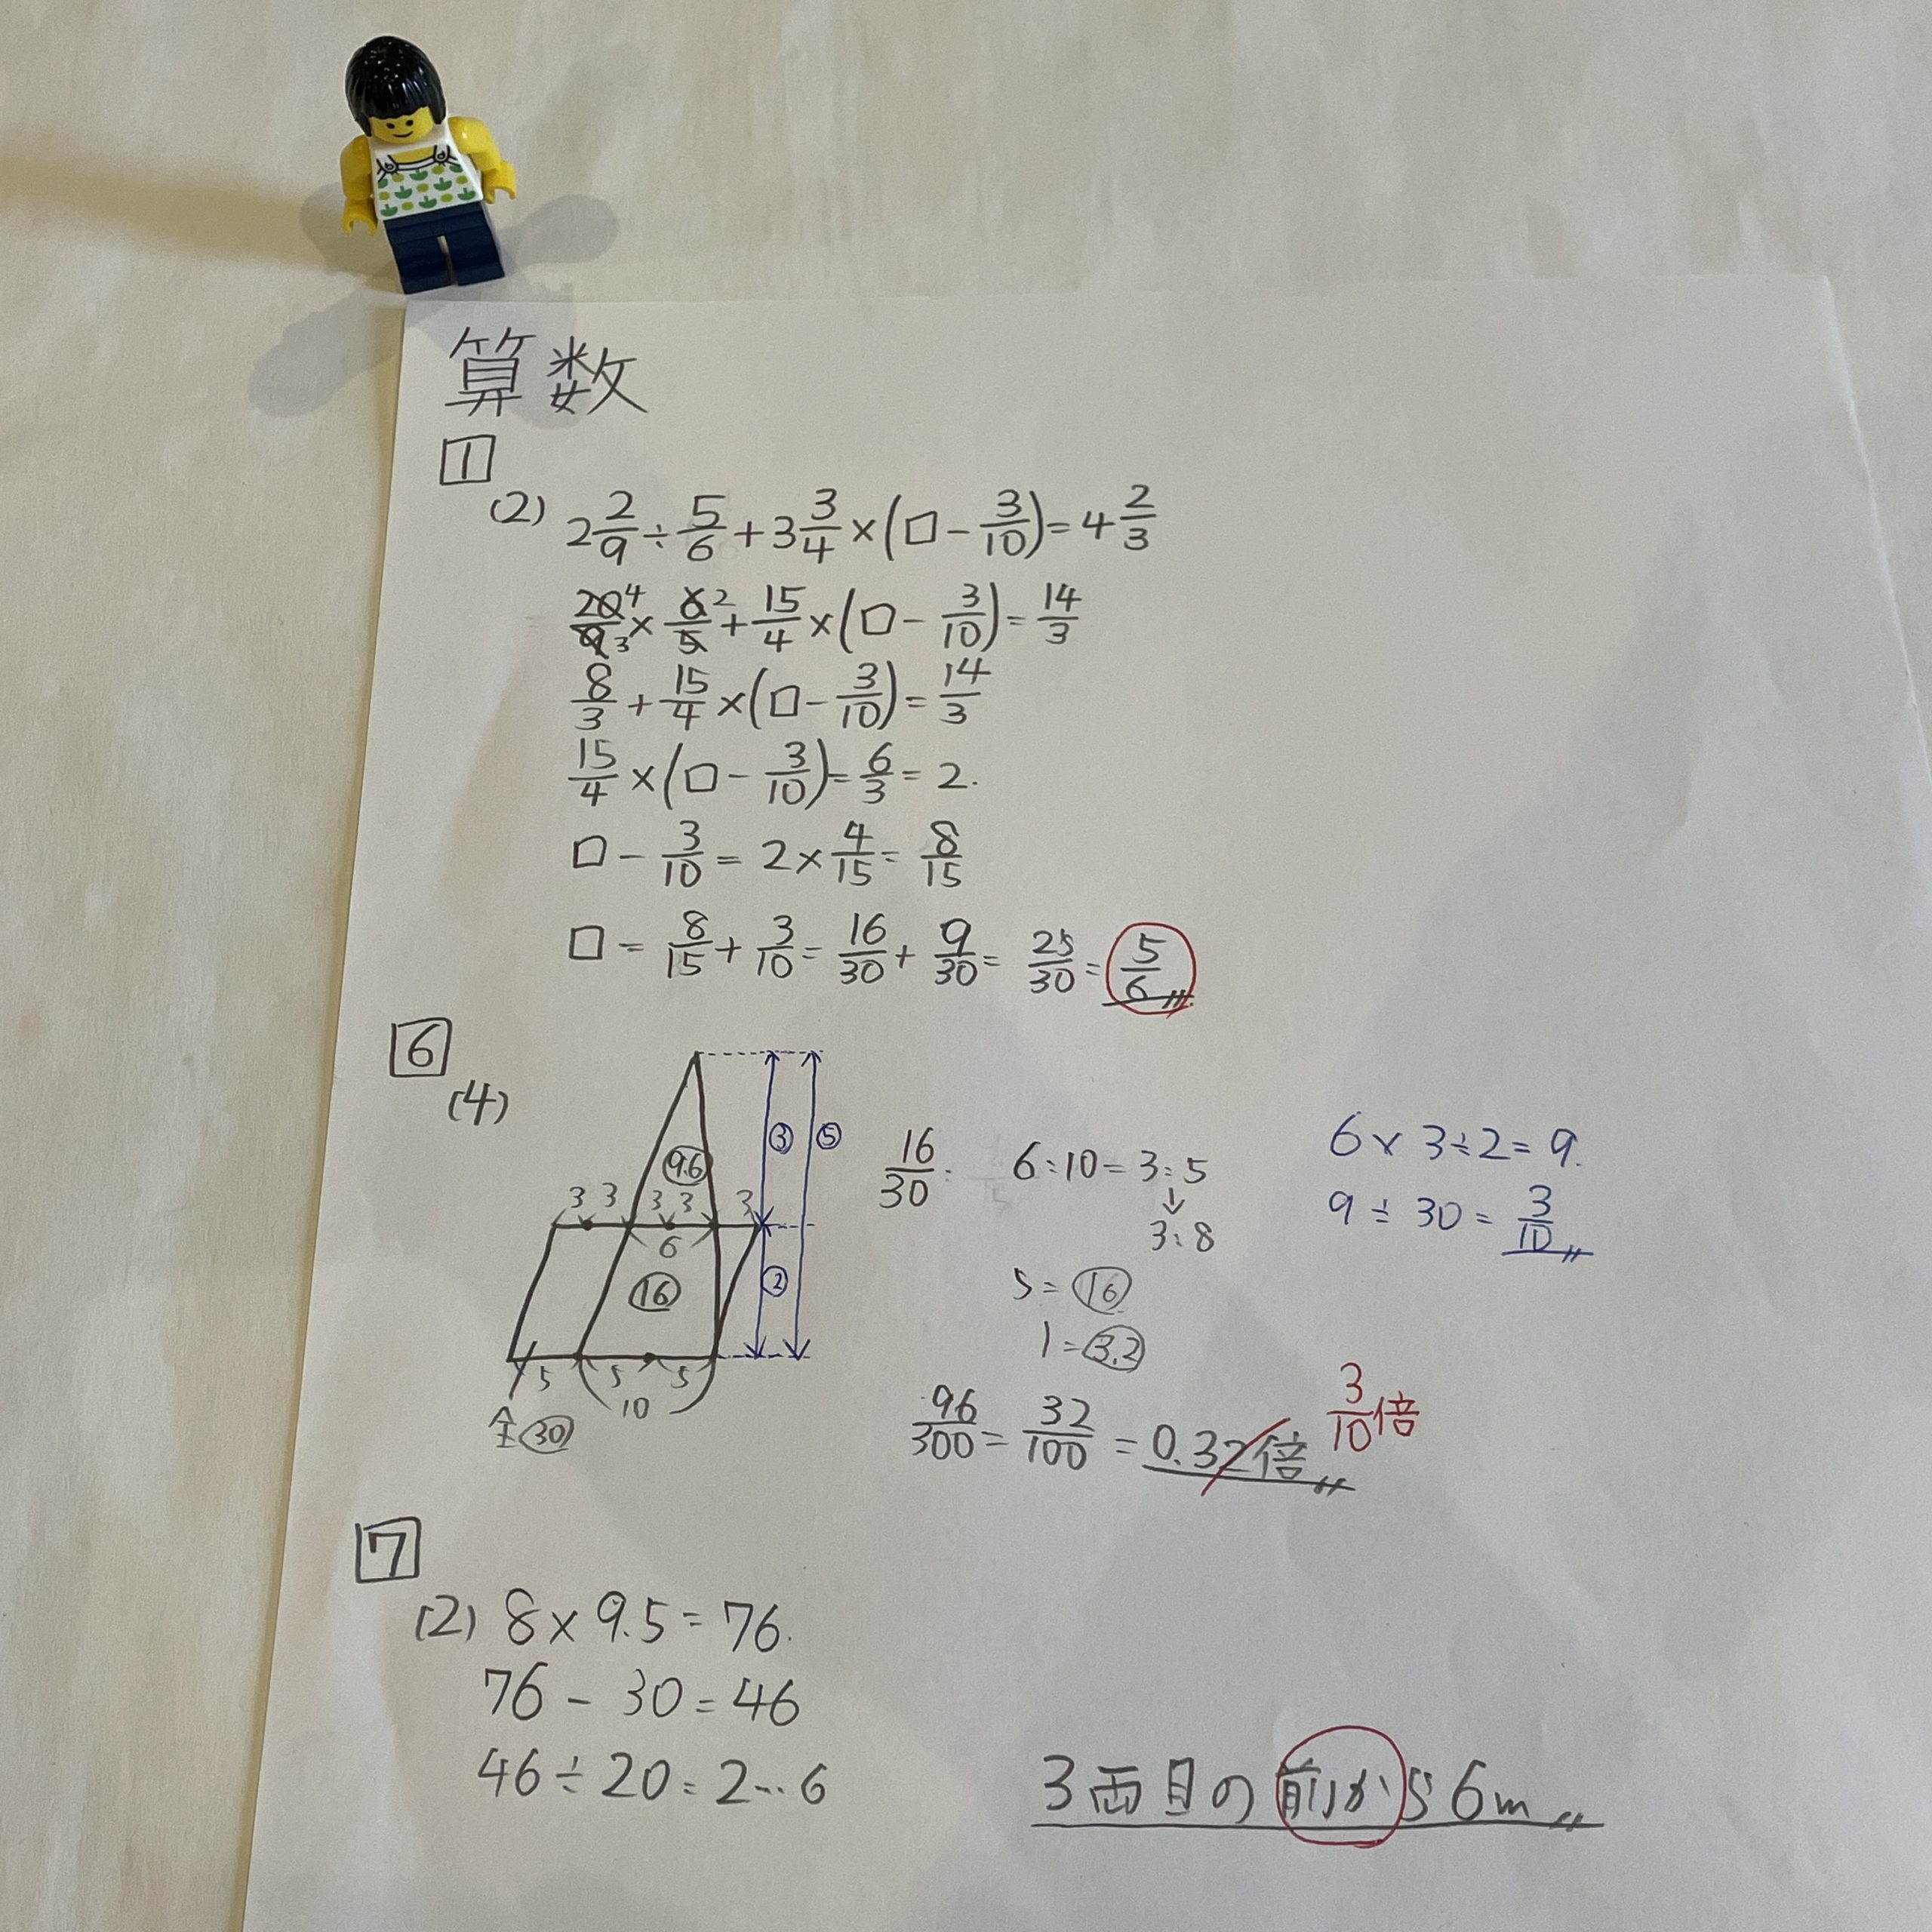 算数
1
(2) 2 2/9 ÷ 5/6 + 3 3/4 × (□ - 3/10) = 4 2/3
20/9 4 3 × 6/5 2 + 15/4 × (□ - 3/10) = 14/3
8/3 + 15/4 × (□ - 3/10) = 14/3
15/4 × (□ - 3/10) = 6/3 = 2.
□ - 3/10 = 2 × 4/15 = 8/15
□ = 8/15 + 3/10 = 16/30 + 9/30 = 25/30 = 5/6
6
(4)
9.6
③ ⑤
3 3 3 3 3
6
16
②
5 5 5
10
全 30
16/30 : 6:10 = 3:5
↓
3:8
5 = 16
1 = 3.2
96/300 = 32/100 = 0.32倍
3/10倍
6 × 3 ÷ 2 = 9.
9 ÷ 30 = 3/10
7
(2) 8 × 9.5 = 76.
76 - 30 = 46
46 ÷ 20 = 2…6
3両目の前から6m